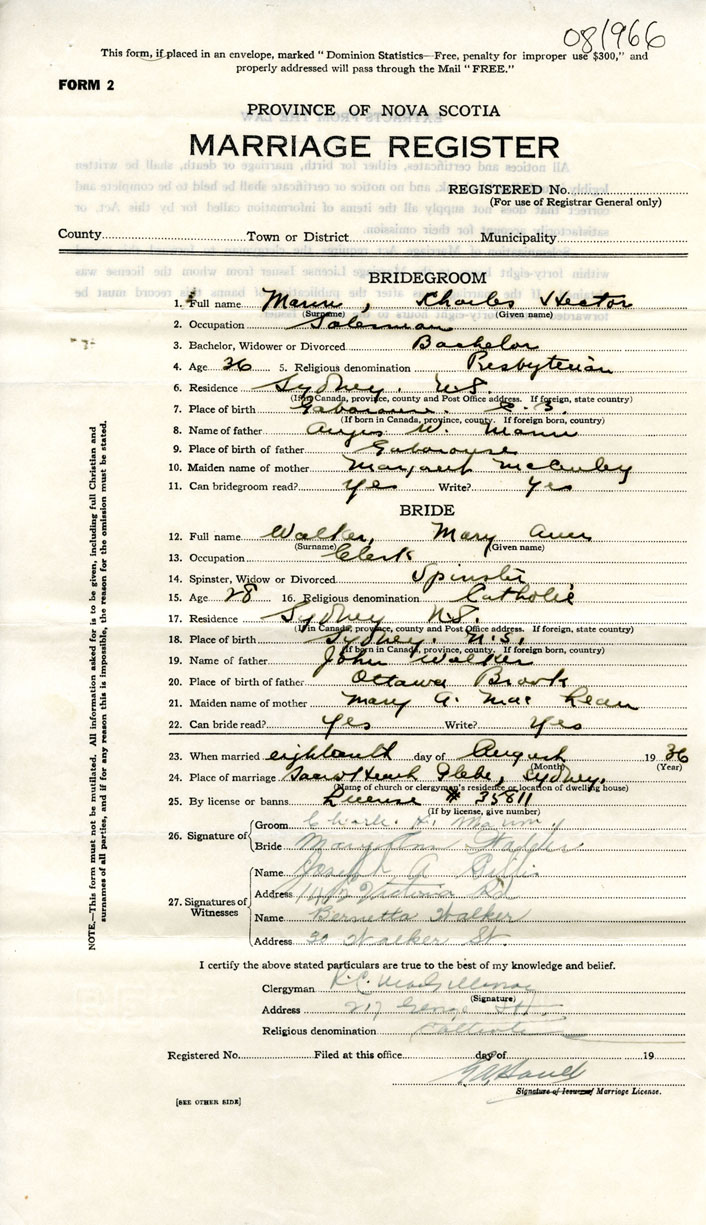 081966
This form, if placed in an envelope, marked "Dominion Statistics—Free, penalty for improper use $300," and
properly addressed will pass through the Mail "FREE."
FORM 2
PROVINCE OF NOVA SCOTIA
MARRIAGE REGISTER
REGISTERED No.
(For use of Registrar General only)
County Town or District Municipality
BRIDEGROOM
1. Full name Mann, Charles Hector
(Surname) (Given name)
2. Occupation Salesman
3. Bachelor, Widower or Divorced Bachelor
4. Age 36 5. Religious denomination Presbyterian
6. Residence Sydney. N.S.
(If in Canada, province, county and Post Office address. If foreign, state country)
7. Place of birth Gabarouse. C.B.
(If born in Canada, province, county. If foreign born, country)
8. Name of father Angus W. Mann
9. Place of birth of father Gabarouse
10. Maiden name of mother Margaret McCauley
11. Can bridegroom read? yes Write? yes
BRIDE
12. Full name Walker, Mary Ann
(Surname) (Given name)
13. Occupation Clerk
14. Spinster, Widow or Divorced Spinster
15. Age 28 16. Religious denomination Catholic
17. Residence Sydney N.S.
(If in Canada, province, county and Post Office address. If foreign, state country)
18. Place of birth Sydney. N.S.
(If born in Canada, province, county. If foreign born, country)
19. Name of father John Walker
20. Place of birth of father Ottawa Brook
21. Maiden name of mother Mary A. MacLean
22. Can bride read? yes Write? yes
23. When married eighteenth day of August 1936
(Month) (Year)
24. Place of marriage Sacred Heart Glebe, Sydney.
(Name of church or clergyman's residence or location of dwelling house)
25. By license or banns License # 35811
(If by license, give number)
26. Signature of
Groom Charles H. Mann
Bride Mary Ann Walker
27. Signatures of Witnesses
Name Joseph A.
Address Victoria Rd
Name Bernetta Walker
Address 30 Walker St.
I certify the above stated particulars are true to the best of my knowledge and belief.
Clergyman R.C. MacGillivray
(Signature)
Address 217 George St.
Religious denomination Catholic
Registered No. Filed at this office day of 19
Signature of Issuer of Marriage License.
[SEE OTHER SIDE]
NOTE.—This form must not be mutilated. All information asked for is to be given, including full Christian and
surnames of all parties, and if for any reason this is impossible, the reason for the omission must be stated.